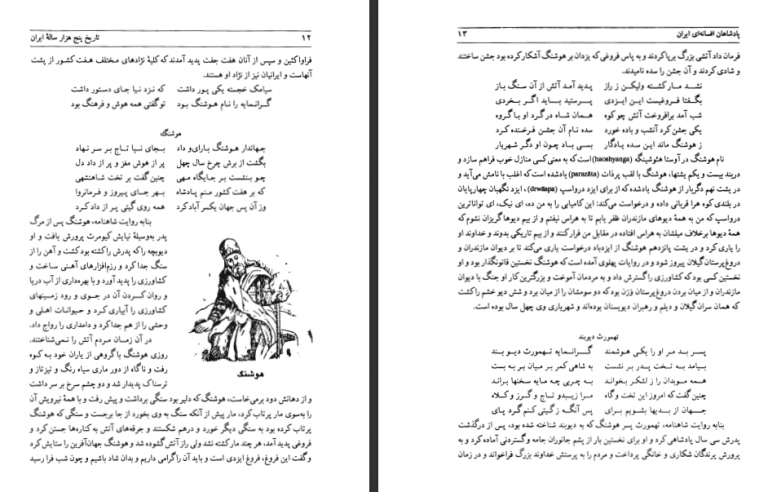 تاریخ پنج هزار سالهٔ ایران
۱۲
فراواکتین و سپس از آنان هفت جفت پدید آمدند که کلیهٔ نژادهای مختلف هفت کشور از پشت
آنهاست و ایرانیان نیز از نژاد او هستند.
سیامک خجسته یکی پور داشت
که نزد نیا جای دستور داشت
گرانمایه را نام هوشنگ بود
تو گفتی همه هوش و فرهنگ بود
هوشنگ
جهاندار هوشنگ با رای و داد
بجای نیا تاج بر سر نهاد
بگشت از برش چرخ سال چهل
پر از هوش مغز و پر از داد دل
چو بنشست بر جایگاه مهی
چنین گفت بر تخت شاهنشهی
که بر هفت کشور منم پادشاه
بهر جای پیروز و فرمانروا
وز آن پس جهان یکسر آباد کرد
همه روی گیتی پر از داد کرد
بنابه روایت شاهنامه، هوشنگ پس از مرگ
پدر به‌وسیلهٔ نیایش کیومرث پرورش یافت و او
دیوبچه را که پدرش را کشته بود کشت و آهن را از
سنگ جدا کرد و رزم‌افزارهای آهنی ساخت و
کشاورزی را پدید آورد و با بهره‌داری از آب دریا
و روان کردن آن در جوی و رود زمینهای
کشاورزی را آبیاری کرد و حیوانات اهلی و
وحشی را از هم جدا کرد و دامداری را رواج داد.
در آن زمان مردم آتش را نمی‌شناختند.
روزی هوشنگ با گروهی از یاران خود به کوه
رفت و ناگاه از دور ماری سیاه رنگ و تیزتاز و
ترسناک پدیدار شد و دو چشم سرخ بر سر داشت
هوشنگ
و از دهانش دود برمی‌خاست، هوشنگ که دلیر بود سنگی برداشت و پیش رفت و با همهٔ نیرویش آن
را به‌سوی مار پرتاب کرد، مار پیش از آنکه سنگ به وی بخورد از جا برجست و سنگی که هوشنگ
پرتاب کرده بود به سنگی دیگر خورد و درهم شکستند و جرقه‌های آتش به کناره‌ها جستن کرد و
فروغی پدید آمد، هر چند مار کشته نشد ولی راز آتش گشوده شد و هوشنگ جهان‌آفرین را ستایش کرد
وگفت این فروغ، فروغ ایزدی است و باید آن را گرامی داریم و بدان شاد باشیم و چون شب فرا رسید
پادشاهان افسانه‌ای ایران
۱۳
فرمان داد آتشی بزرگ برپا کردند و به پاس فروغی که یزدان بر هوشنگ آشکار کرده بود جشن ساختند
و شادی کردند و آن جشن را سده نامیدند.
نشد مار کشته ولیکن ز راز
پدید آمد آتش از آن سنگ باز
بگفتا فروغیست این ایزدی
پرستید باید اگر بخردی
شب آمد برافروخت آتش چو کوه
همان شاه در گرد او با گروه
یکی جشن کرد آنشب و باده خورد
سده نام آن جشن فرخنده کرد
ز هوشنگ ماند این سده یادگار
بسی باد چون او دگر شهریار
نام هوشنگ در آوستا هئوشینگه (haoshyanga) است که به معنی کسی منازل خوب فراهم سازد و
دربند بیست و یکم یشتها، هوشنگ با لقب پرذات (parazāta) یاد شده است که اغلب با نامش می‌آید و
در یشت نهم دگربار از هوشنگ یادشده که از برای ایزد درواسپ (drwāspa)، ایزد نگهبان چهارپایان
در بلندی کوه هرا قربانی داده و درخواست می‌کند: این کامیابی را به من ده، ای نیک، ای تواناترین
درواسپ که من به همهٔ دیوهای مازندران ظفر یابم تا به هراس نیفتم و از بیم دیوها گریزان نشوم که
همهٔ دیوها برخلاف میلشان به هراس افتاده در مقابل من فرار کنند و از بیم تاریکی بدوند و خداوند او
را یاری کرد و در یشت پانزدهم هوشنگ از ایزدباد درخواست یاری می‌کند تا بر دیوان مازندران و
دروغ‌پرستان گیلان پیروز شود و در روایات پهلوی آمده است که هوشنگ نخستین قانونگذار بود و او
نخستین کسی بود که کشاورزی را گسترش داد و به مردمان آموخت و بزرگترین کار او جنگ با دیوان
مازندران و از میان بردن دروغ‌پرستان وَرَن بود که دو سومشان را از میان برد و شش دیو خشم را کشت
که همان سران گیلان و دیلم و رهبران دیویستان بوده‌اند و شهریاری وی چهل سال بوده است.
تهمورث دیوبند
پسر بد مر او را یکی هوشمند
گرانمایه تهمورث دیو بند
بیامد به تخت پدر بر نشست
به شاهی کمر بر میان بر به بست
همه موبدان را ز لشکر بخواند
به چربی چه مایه سخنها براند
چنین گفت که امروز این تخت و گاه
مرا زیبد و تاج و گرز و کلاه
جهان از بدیها بشویم برای
پس آنگه ز گیتی کنم گرد پای
بنابه روایت شاهنامه، تهمورث پسر هوشنگ که به دیوبند شناخته شده بود، پس از درگذشت
پدرش سی سال پادشاهی کرد و او برای نخستین بار از پشم جانوران جامه و گستردنی آماده کرد و به
پرورش پرندگان شکاری و خانگی پرداخت و مردم را به پرستش خداوند بزرگ فراخواند و در زمان